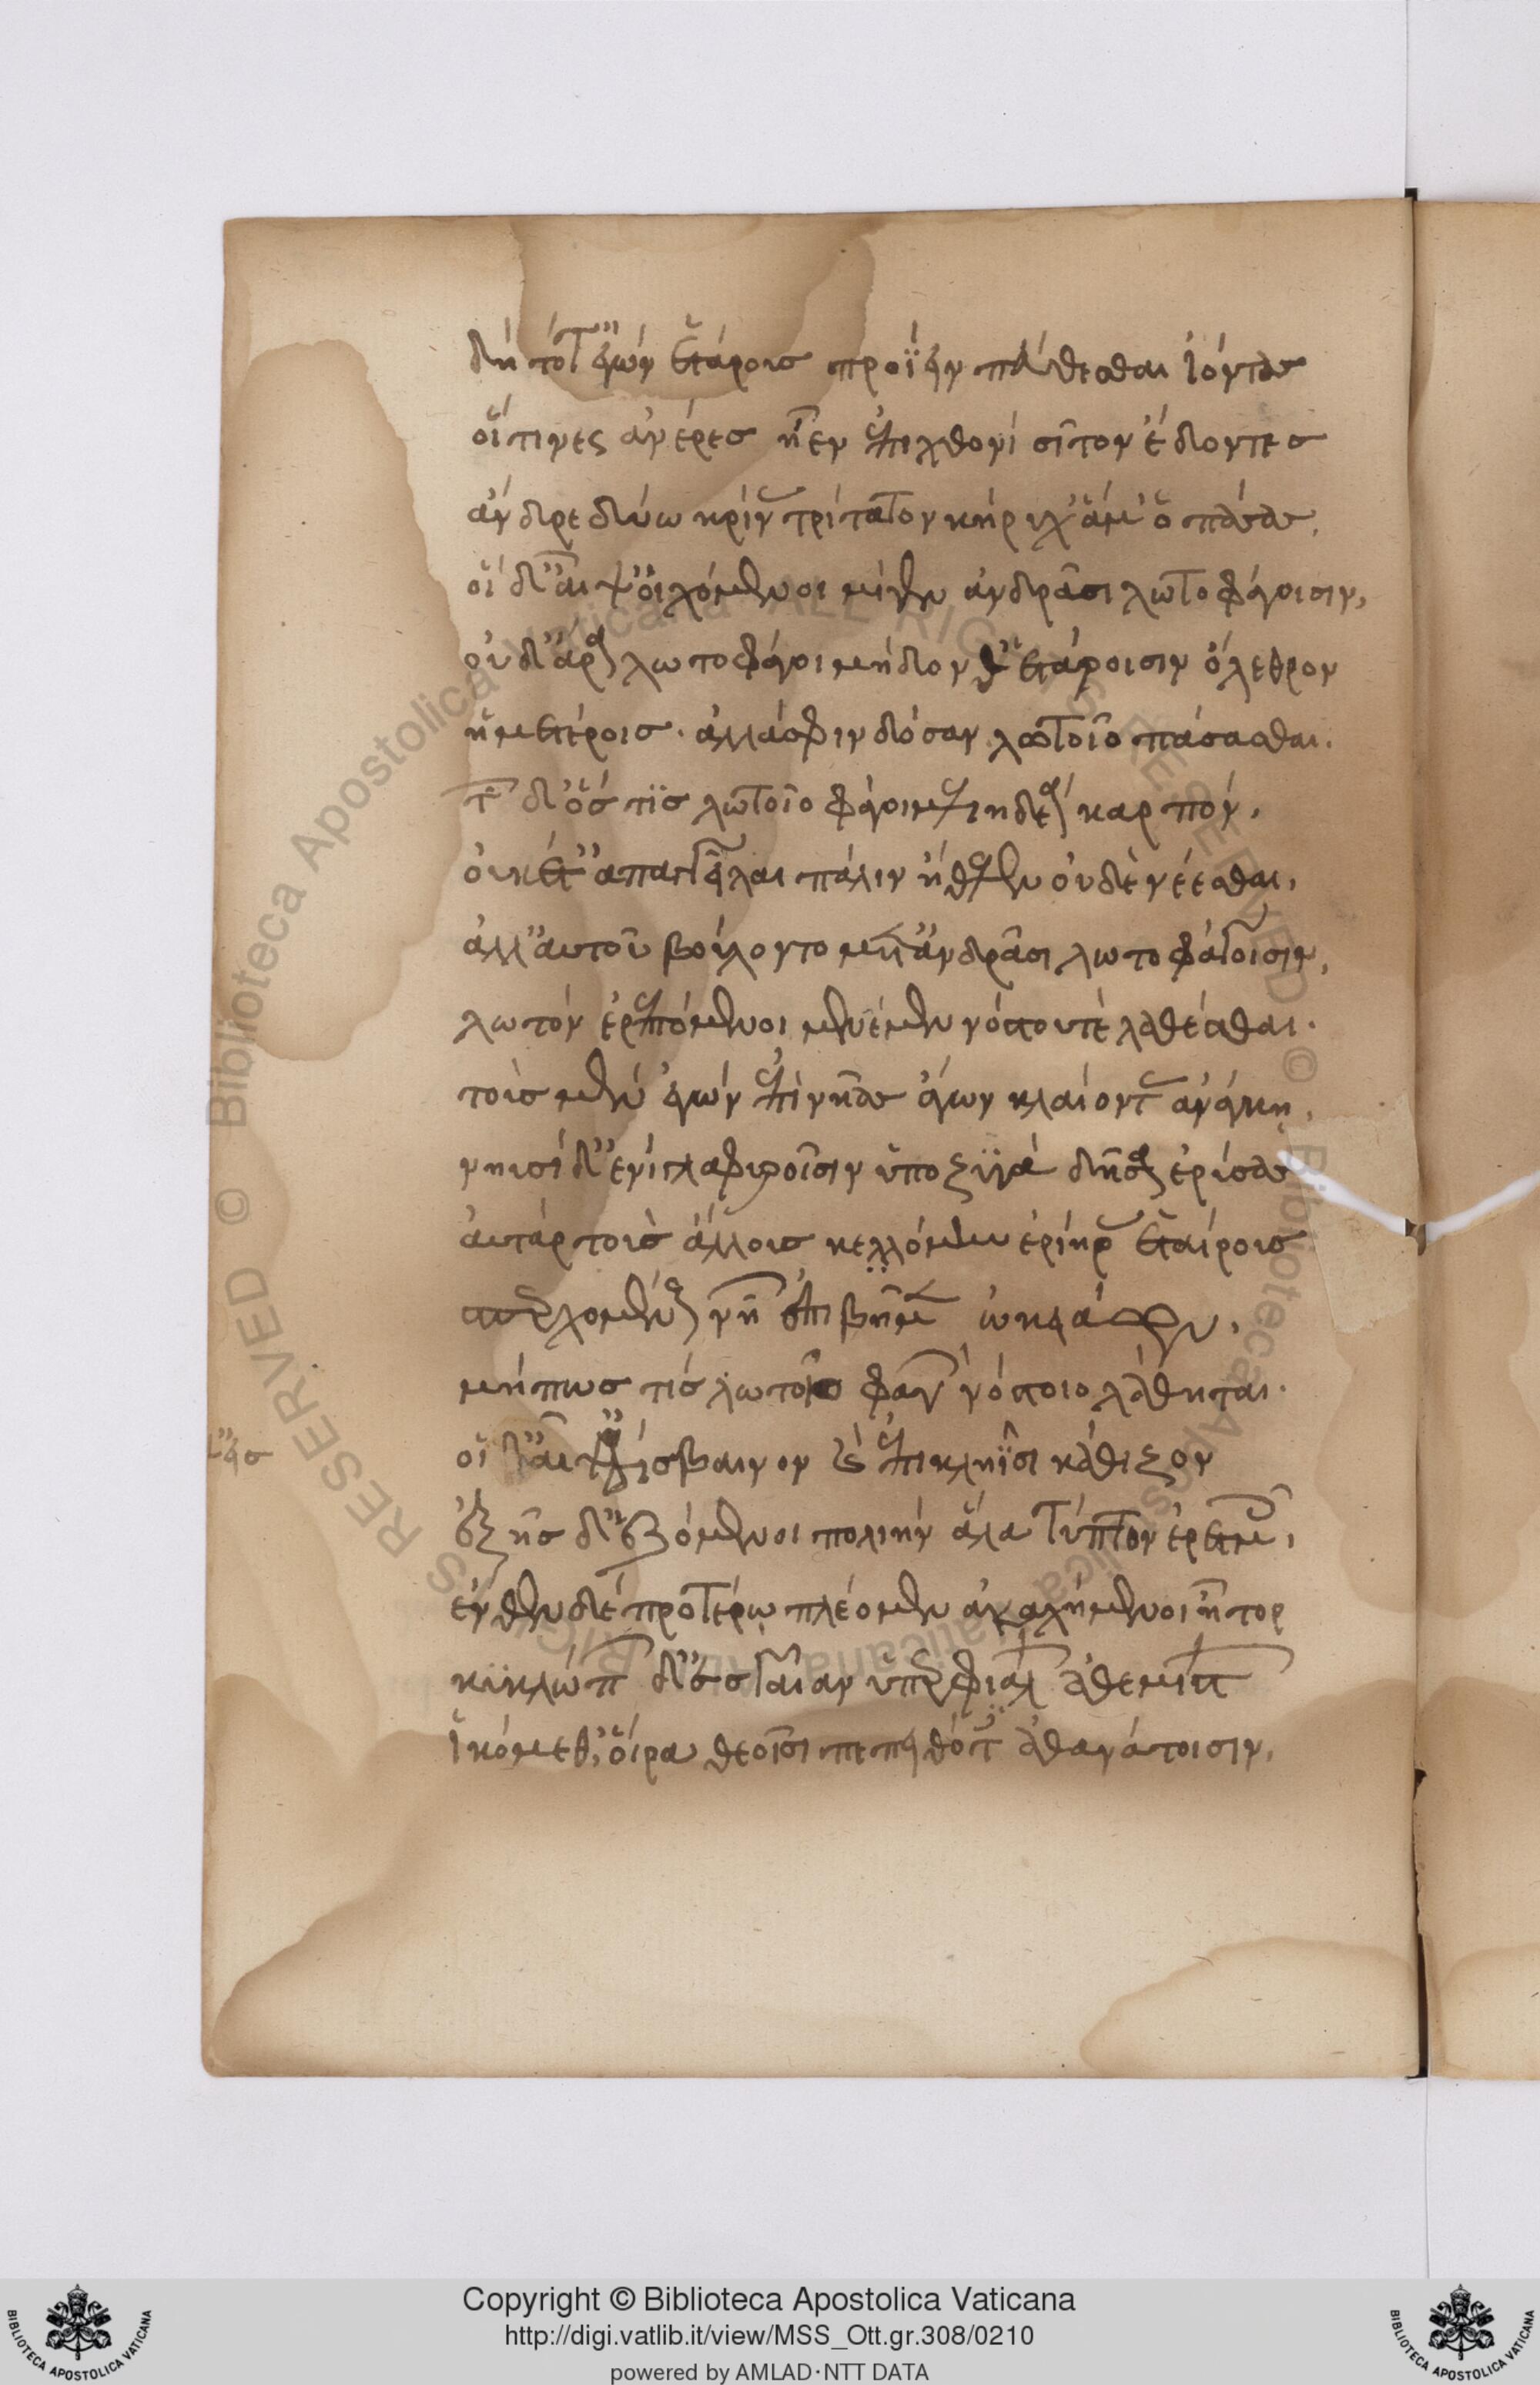 δὴ τότ' ἐγὼν ἑτάρους προΐειν πεύθεσθαι ἰόντας
οἵτινες ἀνέρες ἦεν ἐπὶ χθονὶ σῖτον ἔδοντες
ἄνδρε δύω κρίνας τρίτατον κήρυχ' ἅμ' ὀπάσας.
οἱ δ' αἶψ' οἰχόμενοι μίγεν ἀνδράσι λωτοφάγοισιν,
οὐδ' ἄρα λωτοφάγοι μήδονθ' ἑτάροισιν ὄλεθρον
ἡμετέροις. ἀλλά σφιν δόσαν λωτοῖο πάσασθαι.
τῶν δ' ὅς τις λωτοῖο φάγοι μελιηδέα καρπόν,
οὐκέτ' ἀπαγγεῖλαι πάλιν ἤθελεν οὐδὲ νέεσθαι,
ἀλλ' αὐτοῦ βούλοντο μετ' ἀνδράσι λωτοφάγοισιν,
λωτὸν ἐρεπτόμενοι μενέμεν νόστου τὲ λαθέσθαι.
τοὺς μὲν ἐγὼν ἐπὶ νῆας ἄγων κλαίοντας ἀνάγκη,
νηυσὶ δ' ἐνὶ γλαφυροῖσιν ὑπὸ ζυγὰ δῆσα ἐρύσας
αὐτὰρ τοὺς ἄλλους κελλόμην ἐρίηρας ἑταίρους
σπερχομένους νηῶν ἐπιβαινέμεν ὠκειάων,
μήπως τίς λωτοῖο φαγὼν νόστοιο λάθηται.
οἱ δ' αἶψ' εἴσβαινον καὶ ἐπὶ κληῖσι κάθιζον
ἑξῆς δ' ἑζόμενοι πολιὴν ἅλα τύπτον ἐρετμοῖς,
ἔνθεν δὲ προτέρω πλέομεν ἀκαχήμενοι ἦτορ
κυκλώπων δ' ἐς γαῖαν ὑπερφιάλων ἀθεμίστων
ἱκόμεθ', οἵ ῥα θεοῖσι πεποιθότες ἀθανάτοισιν,
Copyright © Biblioteca Apostolica Vaticana
http://digi.vatlib.it/view/MSS_Ott.gr.308/0210
powered by AMLAD·NTT DATA